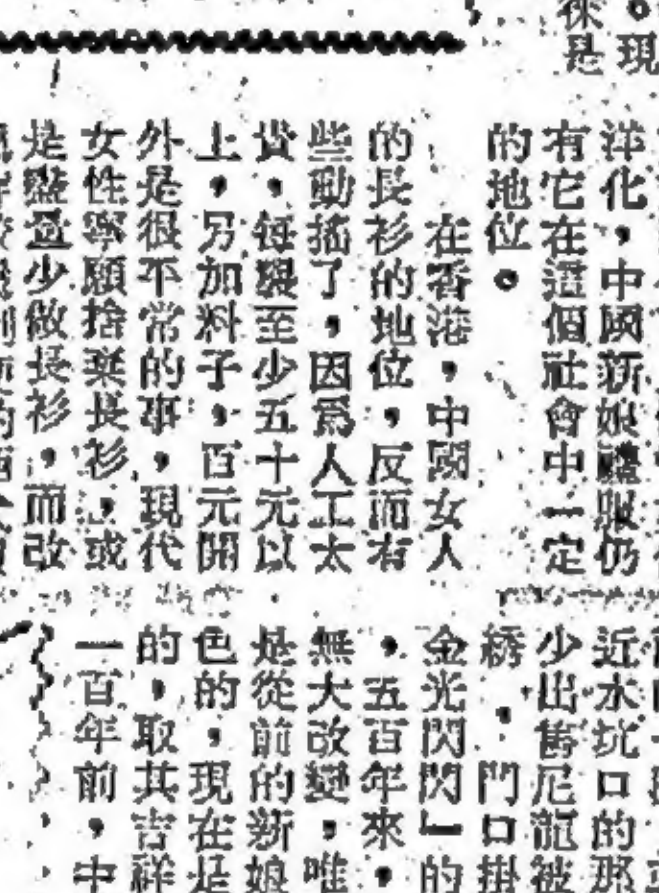 。現
徠是
洋化，中國新娘禮服仍
有它在這個社會中一定
的地位。
在香港，中國女人
的長衫的地位，反而有
些動搖了，因爲人工太
貴，每襲至少五十元以
上，另加料子，百元開
外是很不常的事，現代
女性寧願捨棄長衫，或
是儘量少做長衫，而改
近水坑口的那
少出售尼龍被
綉，門口掛
金光閃閃」的
，五百年來，
無大改變，唯
是從前的新娘
色的，現在是
的，取其吉祥
一百年前，中